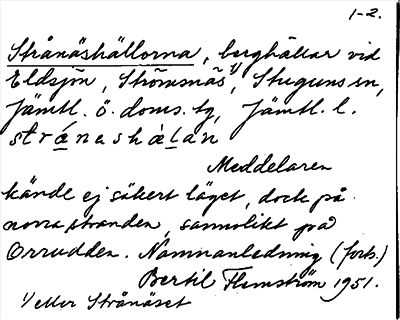 1-2.
Strånäshällorna, berghällar vid
Eldsjön, Strömsnäs 1), Stuguns sn,
Jämtl. ö. doms. tg, Jämtl. l.
stránashàlan
Meddelaren
kände ej säkert läget, dock på
norra stranden, sannolikt på
Orrudden. Namnanledning (forts.)
Bertil Flemström 1951.
1/ eller Strånäset